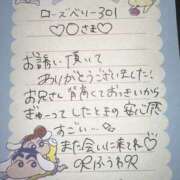 ローズベリー301
♡〇〇さま♡
お誘い頂いて
ありがとうございました!
お兄さん背高くておっきいから
ぎゅーってしたときの安心感
すごい…
また会いに来てね♡